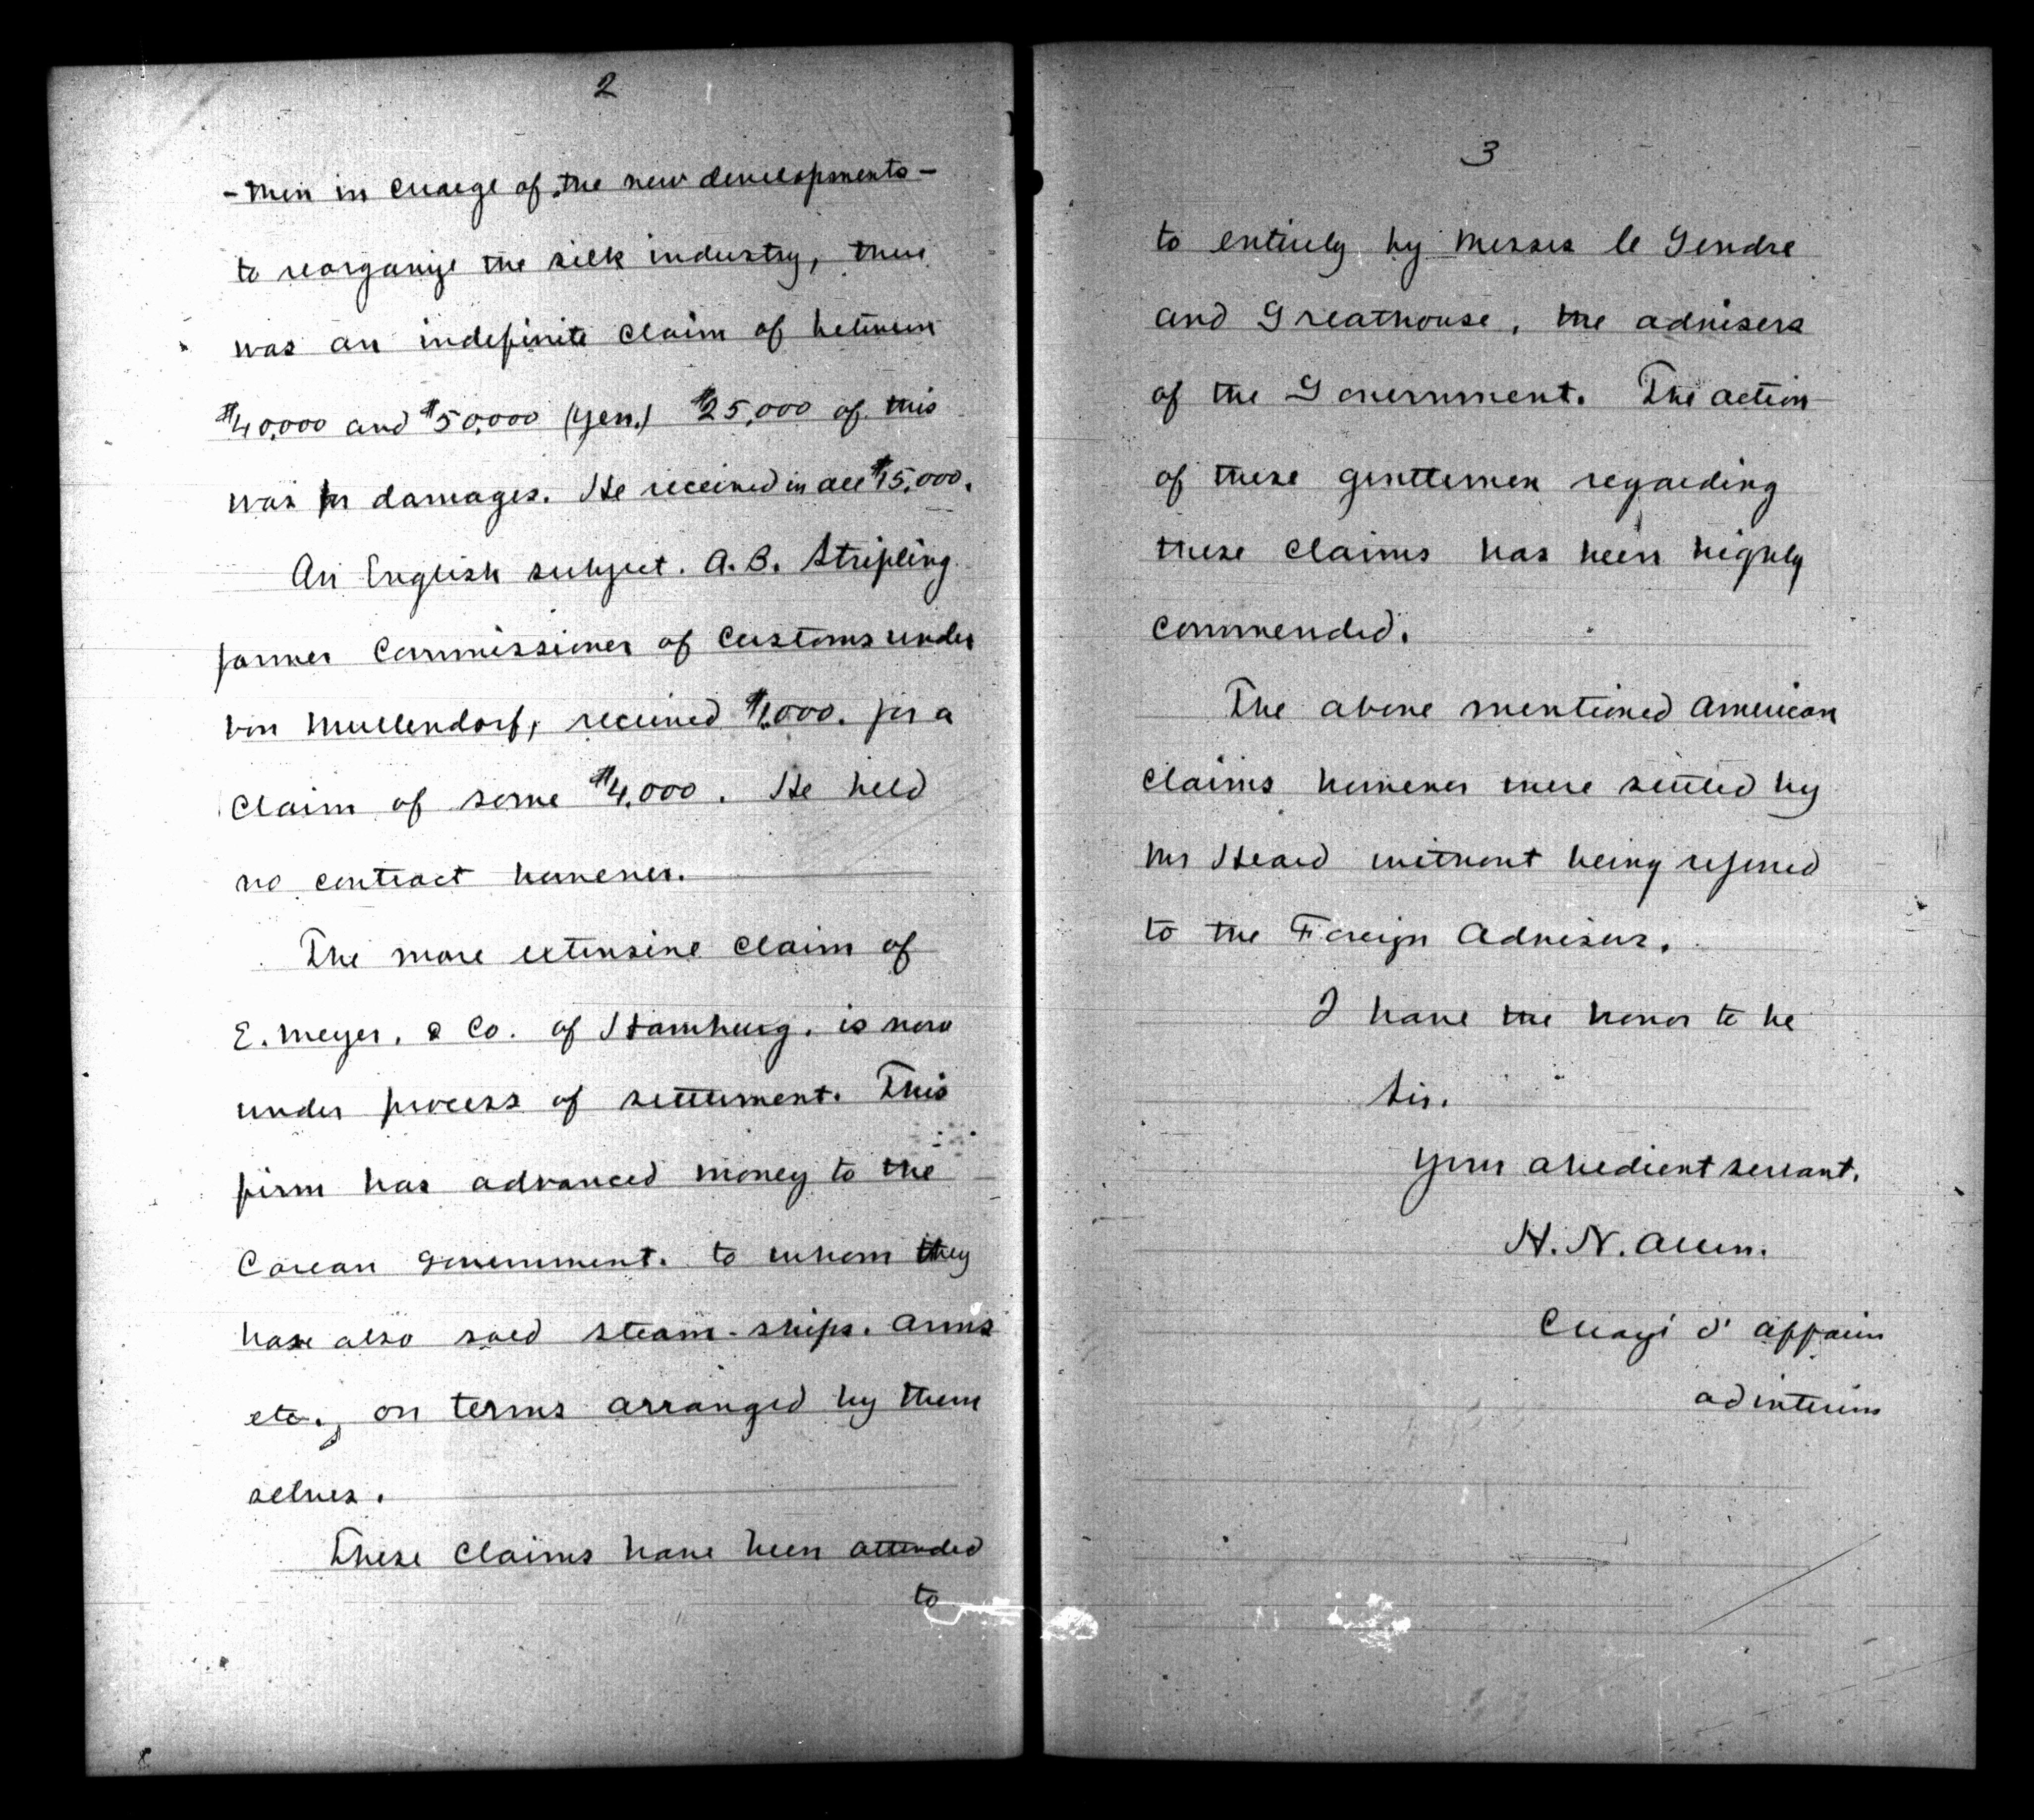 2
- then in charge of the new developments -
to reorganize the silk industry, there
was an indefinite claim of between
$40,000 and $50,000 (yen.) $25,000 of this
was for damages. He received in all $15,000.
An English subject. A. B. Stripling
former Commissioner of Customs under
von Mullendorf, received $1,000. for a
claim of some $4,000. He held
no contract however.
The more extensive claim of
E. Meyer, & Co. of Hamburg. is now
under process of settlement. This
firm has advanced money to the
Corean Government. to whom they
have also sold steam-ships. arms
etc., on terms arranged by them
selves.
These claims have been attended
to
3
to entirely by Messrs le Gendre
and Greathouse, the advisers
of the Government. The action
of these gentlemen regarding
these claims has been highly
commended.
The above mentioned American
claims however were settled by
Mr Heard without being referred
to the Foreign Advisers.
I have the honor to be
Sir.
Your obedient servant.
H. N. Allen.
Chargé d' Affaires
ad interim